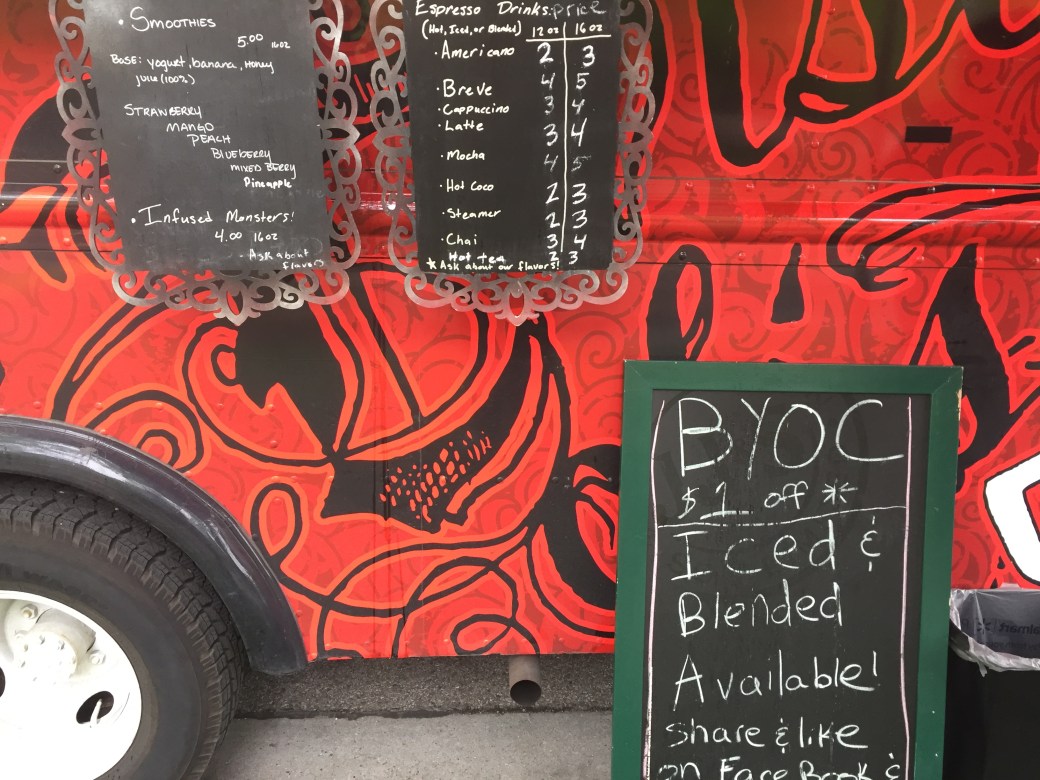 • Smoothies
5.00 16oz
Base: yogurt, banana, Honey
juice (100%)
Strawberry
Mango
Peach
Blueberry
mixed Berry
Pineapple
• Infused Monsters!
4.00 16oz
- Ask about
flavors
Espresso Drinks: price
(Hot, Iced, or Blended) 12 oz | 16 oz
• Americano 2 3
• Breve 4 5
• Cappuccino 3 4
• Latte 3 4
• Mocha 4 5
• Hot Coco 2 3
• Steamer 2 3
• Chai 3 4
Hot tea 2 3
* Ask about our flavors!
BYOC
$1 off *
Iced &
Blended
Available!
share & like
on FaceBook &